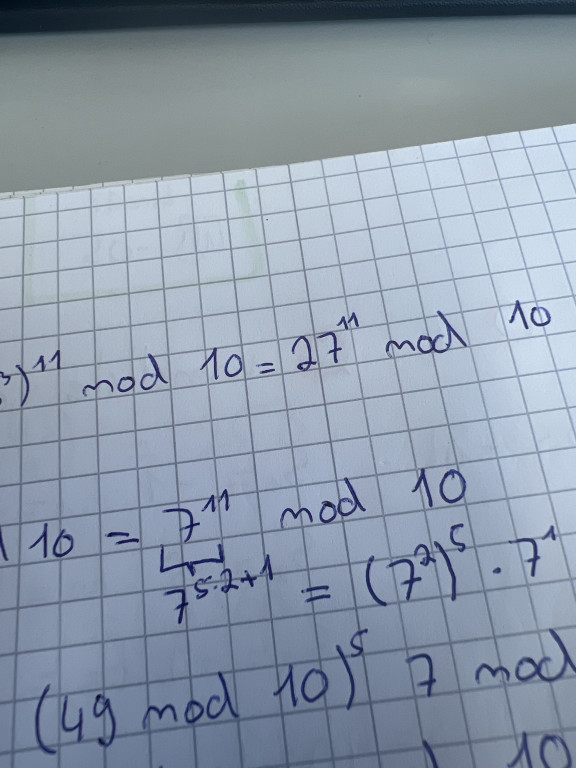 ³)¹¹ mod 10 = 27¹¹ mod 10
10 = 7¹¹ mod 10
7⁵·²⁺¹ = (7²)⁵ · 7¹
(49 mod 10)⁵ 7 mod
10